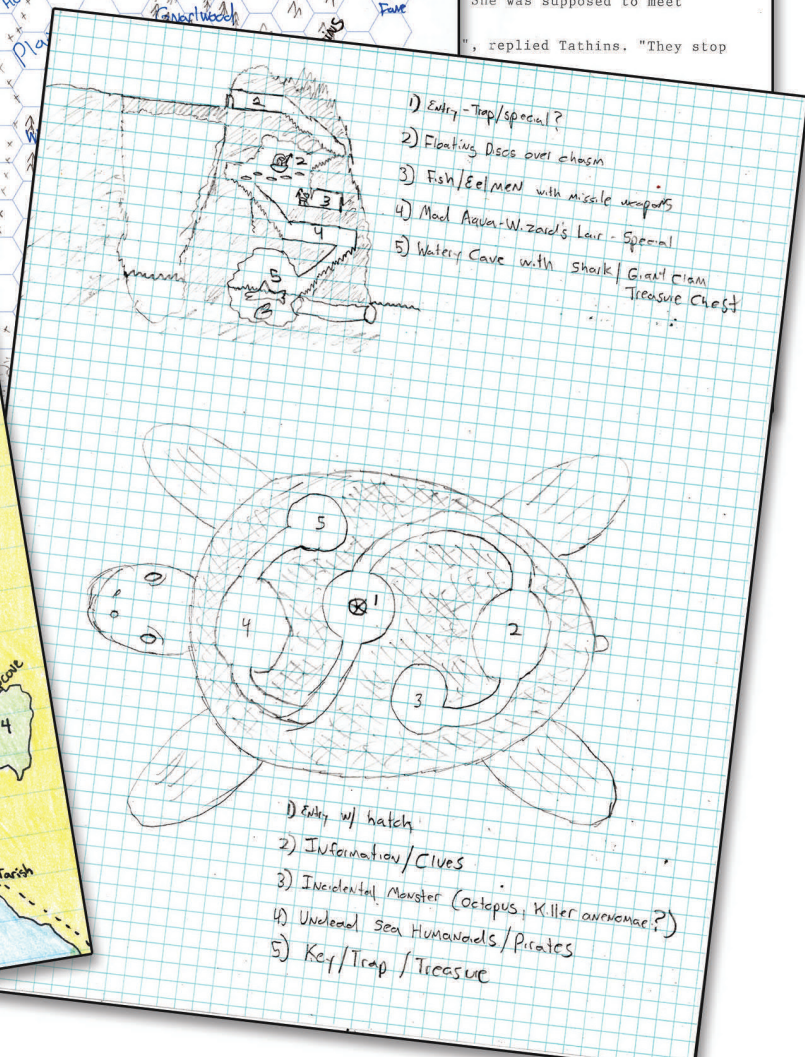 Gnarlwood
Fane
She was supposed to meet
", replied Tathins. "They stop
1) Entry - Trap/special?
2) Floating Discs over chasm
3) Fish/EelMEN with missile weapons
4) Mad Aqua-Wizard's Lair - Special
5) Watery Cave with Shark/Giant Clam
Treasure Chest
2
2
3
4
5
5
1
4
2
3
1) Entry w/ hatch
2) Information/Clues
3) Incidental Monster (Octopus, Killer anenomae?)
4) Undead Sea Humanoids/Pirates
5) Key/Trap/Treasure
cove
4
Tarish